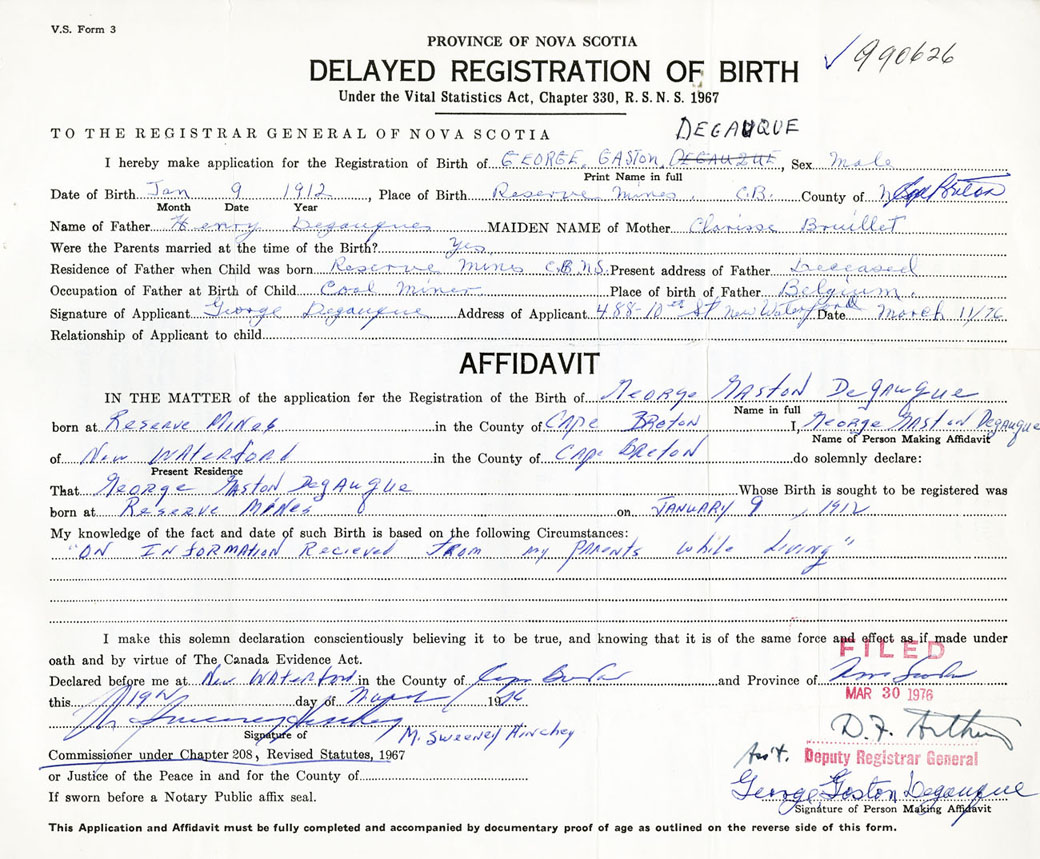 V.S. Form 3
PROVINCE OF NOVA SCOTIA
DELAYED REGISTRATION OF BIRTH
990626
Under the Vital Statistics Act, Chapter 330, R.S.N.S. 1967
DEGAUQUE
TO THE REGISTRAR GENERAL OF NOVA SCOTIA
I hereby make application for the Registration of Birth of GEORGE, GASTON, Sex Male
Print Name in full
Date of Birth Jan 9 1912, Place of Birth Reserve Mines. C.B. County of Cape Breton
Month Date Year
Name of Father Henry Degauque MAIDEN NAME of Mother Clarisse Brouillet
Were the Parents married at the time of the Birth? Yes
Residence of Father when Child was born Reserve Mines C.B.N.S. Present address of Father Deceased
Occupation of Father at Birth of Child Coal Miner Place of birth of Father Belgium.
Signature of Applicant George Degauque Address of Applicant 488-10 St New Waterford Date March 11/76
Relationship of Applicant to child
AFFIDAVIT
IN THE MATTER of the application for the Registration of the Birth of George Gaston Degauque
Name in full
born at Reserve Mines in the County of Cape Breton I, George Gaston Degauque
Name of Person Making Affidavit
of New Waterford in the County of Cape Breton do solemnly declare:
Present Residence
That George Gaston Degauque Whose Birth is sought to be registered was
born at Reserve Mines on January 9, 1912
My knowledge of the fact and date of such Birth is based on the following Circumstances:
"ON INFORMATION Recieved From my parents while living"
I make this solemn declaration conscientiously believing it to be true, and knowing that it is of the same force and effect as if made under
oath and by virtue of The Canada Evidence Act.
FILED
Declared before me at New Waterford in the County of Cape Breton and Province of Nova Scotia
MAR 30 1976
this day of March 1976
M. Sweeney Hinchey
Signature of
M. Sweeney Hinchey
D.F. Arthur
Commissioner under Chapter 208, Revised Statutes, 1967
Ass't. Deputy Registrar General
or Justice of the Peace in and for the County of
George Gaston Degauque
If sworn before a Notary Public affix seal.
Signature of Person Making Affidavit
This Application and Affidavit must be fully completed and accompanied by documentary proof of age as outlined on the reverse side of this form.